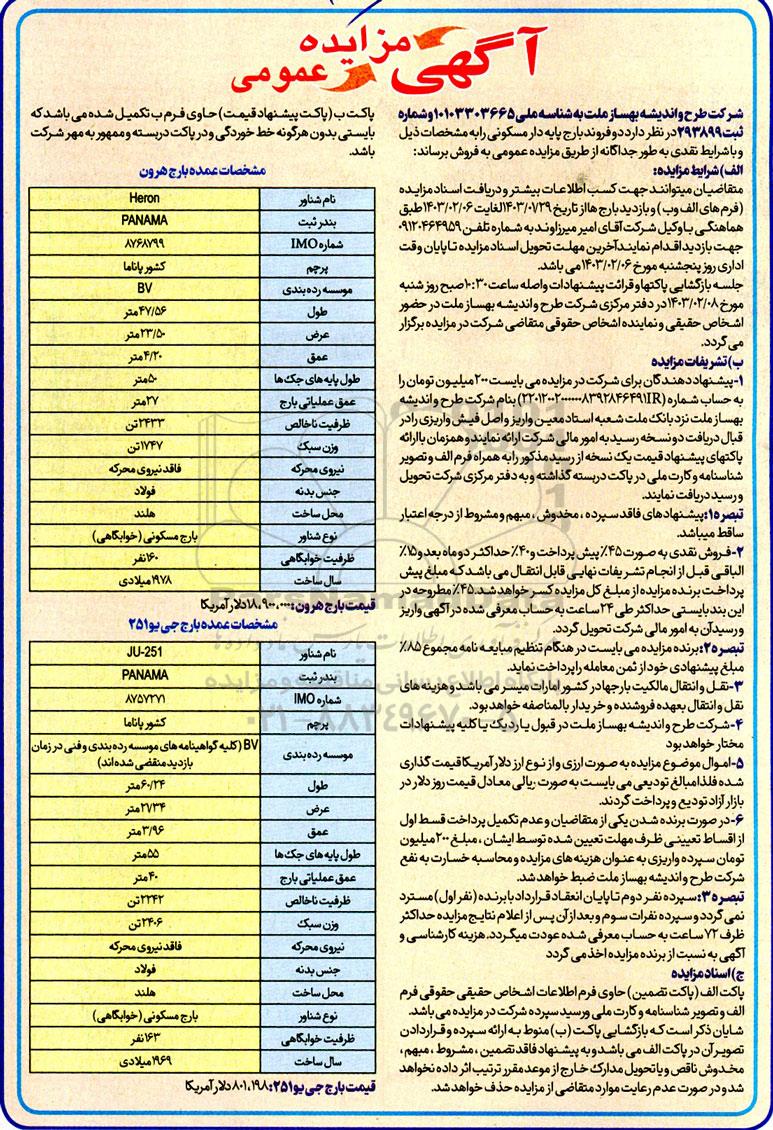 آگهی مزایده عمومی
شرکت طرح و اندیشه بهساز ملت به شناسه ملی ۱۰۱۰۳۳۰۳۶۶۵ و شماره
ثبت ۲۹۳۸۹۹ در نظر دارد دو فروند بارج پایه دار مسکونی را به مشخصات ذیل
و با شرایط نقدی به طور جداگانه از طریق مزایده عمومی به فروش برساند:
الف) شرایط مزایده:
متقاضیان میتوانند جهت کسب اطلاعات بیشتر و دریافت اسناد مزایده
(فرم های الف و ب) و بازدید بارج ها از تاریخ ۱۴۰۳/۰۱/۲۹ لغایت ۱۴۰۳/۰۲/۰۶ طبق
هماهنگی با وکیل شرکت آقای امیر میرزاوند به شماره تلفن ۰۹۱۲۰۴۶۴۹۵۹
جهت بازدید اقدام نمایند آخرین مهلت تحویل اسناد مزایده تا پایان وقت
اداری روز پنجشنبه مورخ ۱۴۰۳/۰۲/۰۶ می باشد.
جلسه بازگشایی پاکتها و قرائت پیشنهادات واصله ساعت ۱۰:۳۰ صبح روز شنبه
مورخ ۱۴۰۳/۰۲/۰۸ در دفتر مرکزی شرکت طرح و اندیشه بهساز ملت در حضور
اشخاص حقیقی و نماینده اشخاص حقوقی متقاضی شرکت در مزایده برگزار
می گردد.
ب) تشریفات مزایده
۱- پیشنهاد دهندگان برای شرکت در مزایده می بایست ۲۰۰ میلیون تومان را
به حساب شماره بنام شرکت طرح و اندیشه
بهساز ملت نزد بانک ملت شعبه استاد معین واریز و اصل فیش واریزی را در
قبال دریافت دو نسخه رسید به امور مالی شرکت ارائه نمایند و همزمان با ارائه
پاکتهای پیشنهاد قیمت یک نسخه از رسید مذکور را به همراه فرم الف و تصویر
شناسنامه و کارت ملی در پاکت دربسته گذاشته و به دفتر مرکزی شرکت تحویل
و رسید دریافت نمایند.
تبصره ۱: پیشنهادهای فاقد سپرده، مخدوش، مبهم و مشروط از درجه اعتبار
ساقط میباشد.
۲- فروش نقدی به صورت ۴۵٪ پیش پرداخت و ۴۰٪ حداکثر دو ماه بعد و ۱۵٪
الباقی قبل از انجام تشریفات نهایی قابل انتقال می باشد که مبلغ پیش
پرداخت برنده مزایده از مبلغ کل مزایده کسر خواهد شد. ۴۵٪ مطروحه در
این بند بایستی حداکثر طی ۲۴ ساعت به حساب معرفی شده در آگهی واریز
و رسید آن به امور مالی شرکت تحویل گردد.
تبصره ۲: برنده مزایده می بایست در هنگام تنظیم مبایعه نامه مجموع ۸۵٪
مبلغ پیشنهادی خود از ثمن معامله را پرداخت نماید.
۳- نقل و انتقال مالکیت بارجها در کشور امارات میسر می باشد و هزینه های
نقل و انتقال بعهده فروشنده و خریدار بالمناصفه خواهد بود.
۴- شرکت طرح و اندیشه بهساز ملت در قبول یا رد یک یا کلیه پیشنهادات
مختار خواهد بود
۵- اموال موضوع مزایده به صورت ارزی و از نوع ارز دلار آمریکا قیمت گذاری
شده فلذا مبالغ تودیعی می بایست به صورت ریالی معادل قیمت روز دلار در
بازار آزاد تودیع و پرداخت گردند.
۶- در صورت برنده شدن یکی از متقاضیان و عدم تکمیل پرداخت قسط اول
از اقساط تعیینی ظرف مهلت تعیین شده توسط ایشان، مبلغ ۲۰۰ میلیون
تومان سپرده واریزی به عنوان هزینه های مزایده و محاسبه خسارت به نفع
شرکت طرح و اندیشه بهساز ملت ضبط خواهد شد.
تبصره ۳: سپرده نفر دوم تا پایان انعقاد قرارداد با برنده (نفر اول) مسترد
نمی گردد و سپرده نفرات سوم و بعد از آن پس از اعلام نتایج مزایده حداکثر
ظرف ۷۲ ساعت به حساب معرفی شده عودت میگردد. هزینه کارشناسی و
آگهی به نسبت از برنده مزایده اخذ می گردد
ج) اسناد مزایده
پاکت الف (پاکت تضمین) حاوی فرم اطلاعات اشخاص حقیقی حقوقی فرم
الف و تصویر شناسنامه و کارت ملی و رسید سپرده شرکت در مزایده می باشد.
شایان ذکر است که بازگشایی پاکت (ب) منوط به ارائه سپرده و قرار دادن
تصویر آن در پاکت الف می باشد و به پیشنهاد فاقد تضمین، مشروط، مبهم،
مخدوش ناقص و یا تحویل مدارک خارج از موعد مقرر ترتیب اثر داده نخواهد
شد و در صورت عدم رعایت موارد متقاضی از مزایده حذف خواهد شد.
پاکت ب (پاکت پیشنهاد قیمت) حاوی فرم ب تکمیل شده می باشد که
بایستی بدون هرگونه خط خوردگی و در پاکت دربسته و ممهور به مهر شرکت
باشد.
مشخصات عمده بارج هرون
نام شناور Heron
بندر ثبت PANAMA
شماره IMO ۸۷۶۸۷۹۹
پرچم کشور پاناما
موسسه رده بندی BV
طول ۴۷/۵۶ متر
عرض ۲۳/۵۰ متر
عمق ۴/۲۰ متر
طول پایه های جک ها ۵۰ متر
عمق عملیاتی بارج ۲۷ متر
ظرفیت ناخالص ۲۴۳۳ تن
وزن سبک ۱۷۴۷ تن
نیروی محرکه فاقد نیروی محرکه
جنس بدنه فولاد
محل ساخت هلند
نوع شناور بارج مسکونی (خوابگاهی)
ظرفیت خوابگاهی ۱۶۰ نفر
سال ساخت ۱۹۷۸ میلادی
قیمت بارج هرون: دلار آمریکا
مشخصات عمده بارج جی یو ۲۵۱
نام شناور JU-251
بندر ثبت PANAMA
شماره IMO ۸۷۵۷۲۷۱
پرچم کشور پاناما
موسسه رده بندی BV (کلیه گواهینامه های موسسه رده بندی و فنی در زمان
بازدید منقضی شده اند)
طول ۶۰/۲۴ متر
عرض ۲۷/۳۴ متر
عمق ۳/۹۶ متر
طول پایه های جک ها ۵۵ متر
عمق عملیاتی بارج ۴۰ متر
ظرفیت ناخالص ۲۲۴۲ تن
وزن سبک ۲۴۰۶ تن
نیروی محرکه فاقد نیروی محرکه
جنس بدنه فولاد
محل ساخت هلند
نوع شناور بارج مسکونی (خوابگاهی)
ظرفیت خوابگاهی ۱۶۳ نفر
سال ساخت ۱۹۶۹ میلادی
قیمت بارج جی یو ۲۵۱: ۸۰۱،۱۹۸ دلار آمریکا